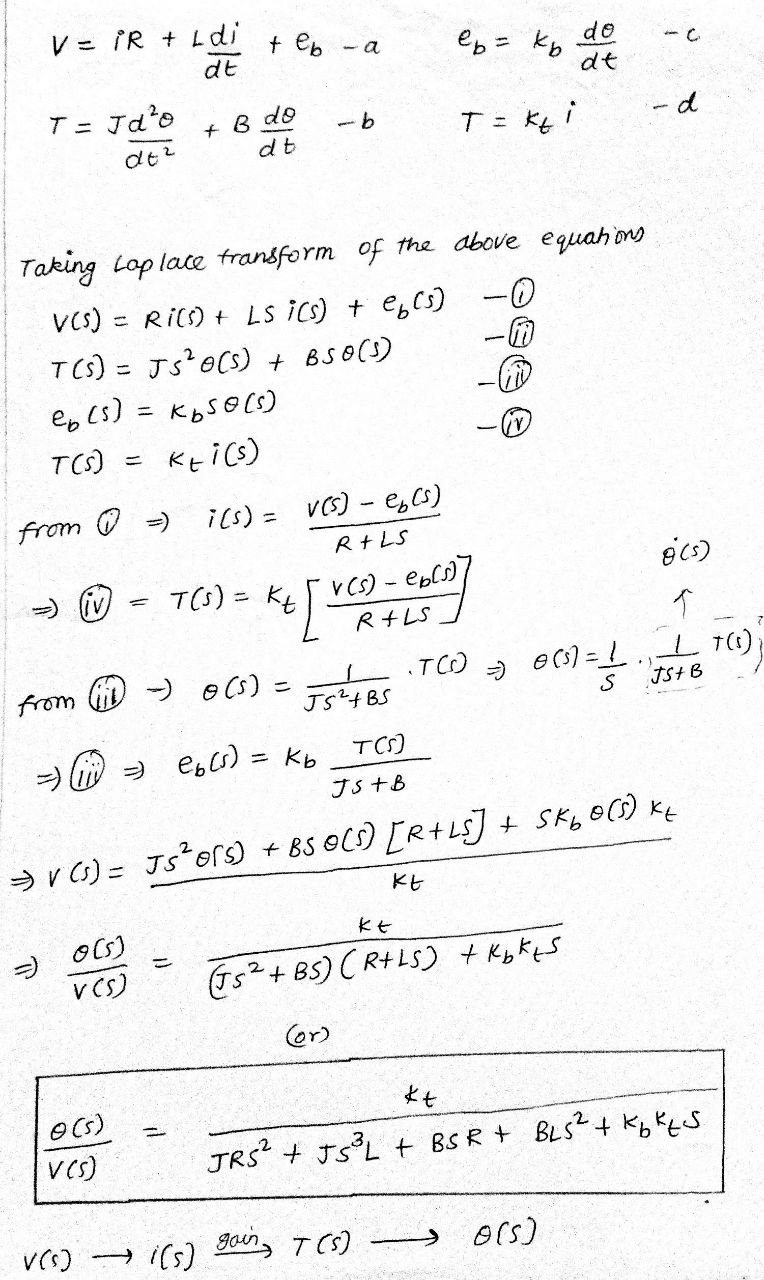 V = iR + L di/dt + e_b - a    e_b = K_b dθ/dt - c
T = J d²θ/dt² + B dθ/dt - b    T = K_t i - d
Taking Laplace transform of the above equations
V(s) = Ri(s) + LS i(s) + e_b(s) - (i)
T(s) = JS²θ(s) + BSθ(s) - (ii)
e_b(s) = K_b Sθ(s) - (iii)
T(s) = K_t i(s) - (iv)
from (i) ⇒ i(s) = (V(s) - e_b(s)) / (R + LS)
⇒ (iv) = T(s) = K_t [(V(s) - e_b(s)) / (R + LS)]
θ̇(s)
↑
from (iii) → θ(s) = 1/(JS² + BS) . T(s) ⇒ θ(s) = 1/S . 1/(JS + B) T(s)
⇒ (iii) ⇒ e_b(s) = K_b T(s)/(JS + B)
⇒ V(s) = (JS²θ(s) + BSθ(s) [R + LS] + SK_b θ(s) K_t) / K_t
⇒ θ(s)/V(s) = K_t / ((JS² + BS)(R + LS) + K_b K_t S)
(or)
θ(s)/V(s) = K_t / (JRS² + JS³L + BSR + BLS² + K_b K_t S)
V(s) → i(s) gain→ T(s) → θ(s)